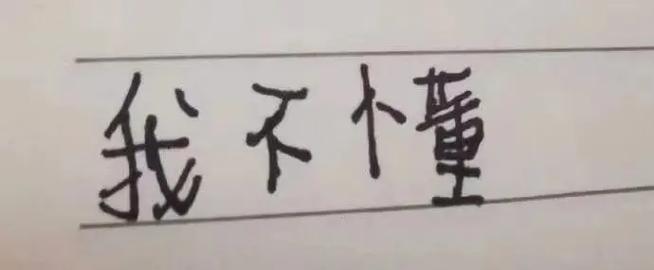 我不懂